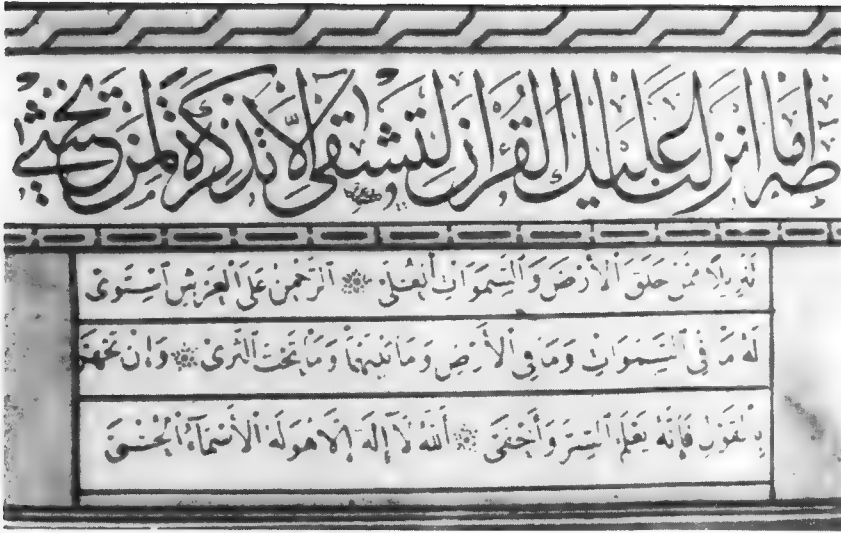 طه ما أنزلنا عليك القرآن لتشقى إلا تذكرة لمن يخشى
تَنزِيلًا مِمَّنْ خَلَقَ ٱلْأَرْضَ وَٱلسَّمَوَاتِ ٱلْعُلَى ۞ ٱلرَّحْمٰنُ عَلَى ٱلْعَرْشِ ٱسْتَوَىٰ
لَهُ مَا فِي ٱلسَّمَوَاتِ وَمَا فِي ٱلْأَرْضِ وَمَا بَيْنَهُمَا وَمَا تَحْتَ ٱلثَّرَىٰ ۞ وَإِنْ تَجْهَرْ
بِٱلْقَوْلِ فَإِنَّهُ يَعْلَمُ ٱلسِّرَّ وَأَخْفَى ۞ ٱللَّهُ لَا إِلَهَ إِلَّا هُوَ لَهُ ٱلْأَسْمَاءُ ٱلْحُسْنَى